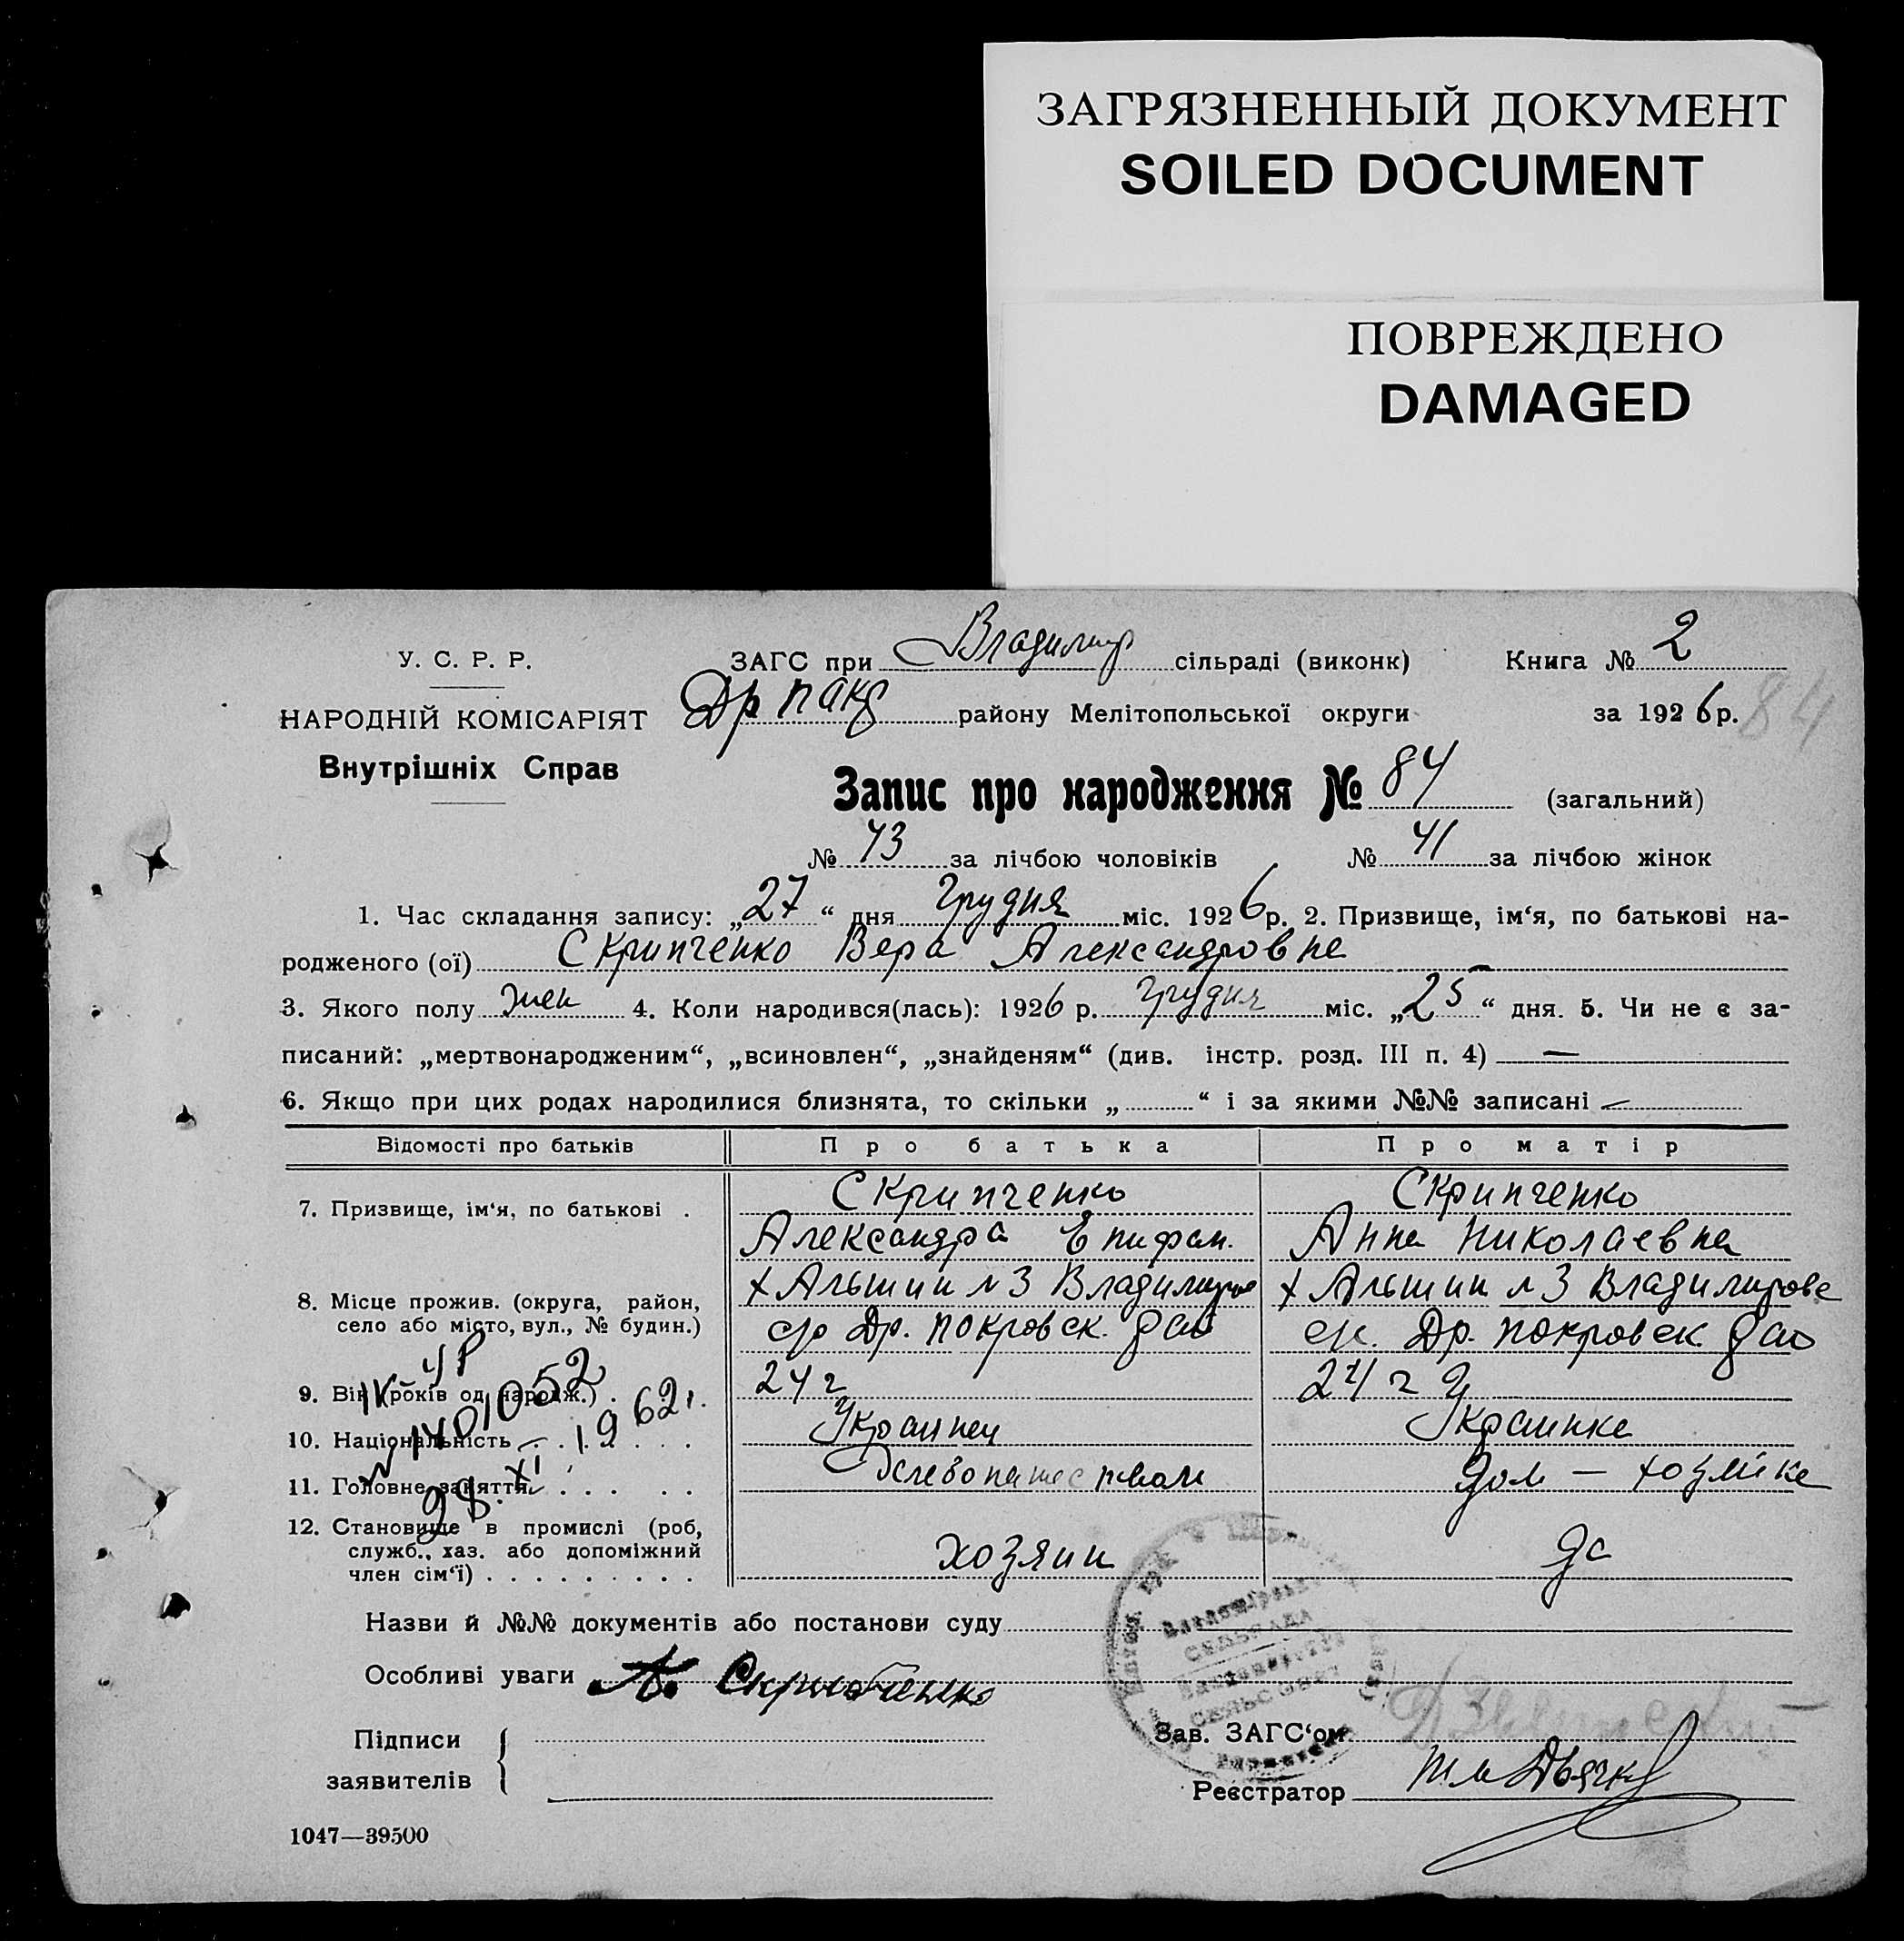 ЗАГРЯЗНЕННЫЙ ДОКУМЕНТ
SOILED DOCUMENT
ПОВРЕЖДЕНО
DAMAGED
У. С. Р. Р.
НАРОДНІЙ КОМІСАРІЯТ
Внутрішніх Справ
ЗАГС при Владимир сільраді (виконк) Книга № 2
Др покр району Мелітопольської округи за 1926 р. 84
Запис про народження № 84 (загальний)
№ 43 за лічбою чоловіків № 41 за лічбою жінок
1. Час складання запису: „27“ дня Грудня міс. 1926 р. 2. Призвище, ім‘я, по батькові на-
родженого (ої) Скрипченко Вера Александровна
3. Якого полу жен 4. Коли народився(лась): 1926 р. Грудня міс. „25“ дня. 5. Чи не є за-
писаний: „мертвонародженим“, „всиновлен“, „знайденям“ (див. інстр. розд. III п. 4) —
6. Якщо при цих родах народилися близнята, то скільки „ “ і за якими №№ записані —
Відомості про батьків Про батька Про матір
7. Призвище, ім‘я, по батькові . Скрипченко Скрипченко
Александра Епифан. Анна Николаевна
8. Місце прожив. (округа, район, село або місто, вул., № будин.)
х Альшин №3 Владимиров х Альшин №3 Владимирове
с/о Др. покровск. рай ск. Др. покровск рай
9. Вік (років од народж.) . 24 г 24 г
10. Національність Украинец Украинка
11. Головне заняття Хлебопашество дом — хозяйка
12. Становище в промислі (роб, служб., хаз. або допоміжний член сім‘ї) хозяин да
1401052
28.XI.1962г.
Назви й №№ документів або постанови суду
Особливі уваги А. Скрипченко
Підписи заявителів
Зав. ЗАГС‘ом
Реєстратор
СЕЛЬРАДА
СЕЛЬСОВЕТ
1047—39500